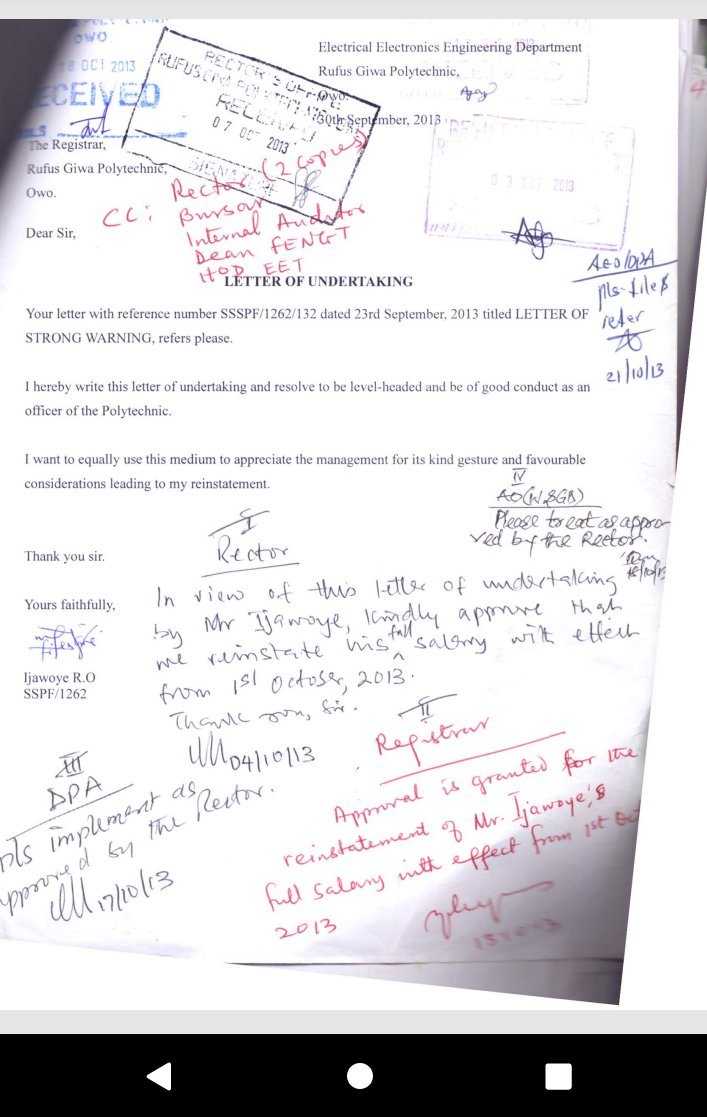 OWO
8 OCT 2013
RECEIVED
RECTOR'S OFFICE
RUFUS GIWA POLYTECHNIC
RECEIVED
07 OCT 2013
Electrical Electronics Engineering Department
Rufus Giwa Polytechnic,
Owo.
30th September, 2013
03 OCT 2013
The Registrar,
Rufus Giwa Polytechnic,
Owo.
CC: Rector (2 copies)
Bursar
Internal Auditor
Dean FENGT
HOD EET
Dear Sir,
AEO/DPA
pls-file &
refer
21/10/13
LETTER OF UNDERTAKING
Your letter with reference number SSSPF/1262/132 dated 23rd September, 2013 titled LETTER OF
STRONG WARNING, refers please.
I hereby write this letter of undertaking and resolve to be level-headed and be of good conduct as an
officer of the Polytechnic.
I want to equally use this medium to appreciate the management for its kind gesture and favourable
considerations leading to my reinstatement.
IV
Please treat as appro-
ved by the Rector.
Thank you sir.
Yours faithfully,
Ijawoye R.O
SSPF/1262
I
Rector
In view of this letter of undertaking
by Mr Ijawoye, kindly approve that
we reinstate his full salary with effect
from 1st October, 2013.
Thank you, Sir.
04/10/13
II
Registrar
Approval is granted for the
reinstatement of Mr. Ijawoye's
full salary with effect from 1st Oct
2013
III
DPA
pls implement as
approved by the Rector.
17/10/13